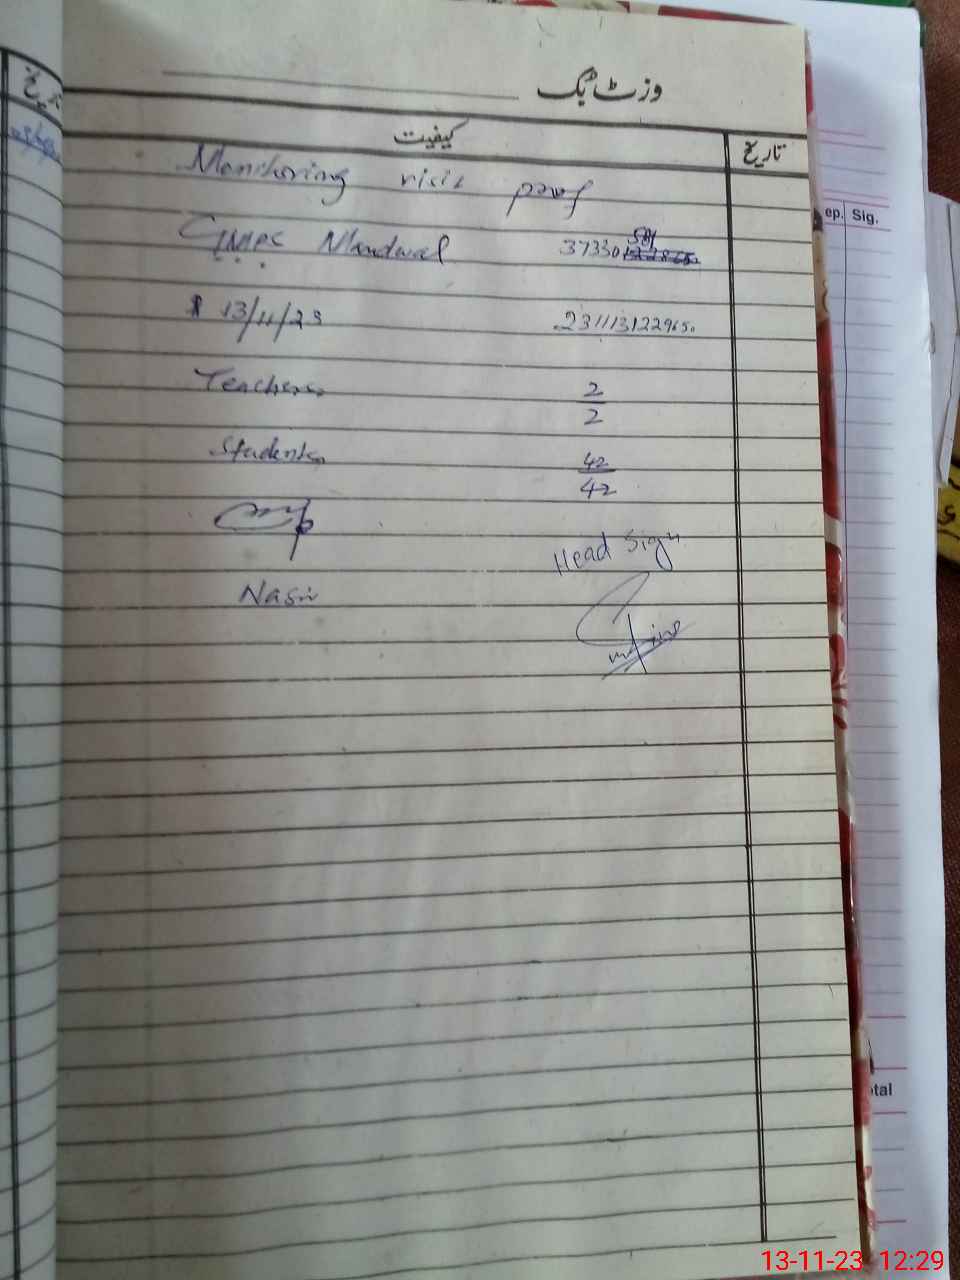 وزٹ بک
تاریخ
کیفیت
تاریخ
Monitoring visit proof
GMPS Mandwal 37330581
13/11/23 231113122965.
Teachers 2/2
Students 42/42
Head Sign
Nasir
ep. Sig.
otal
13-11-23 12:29